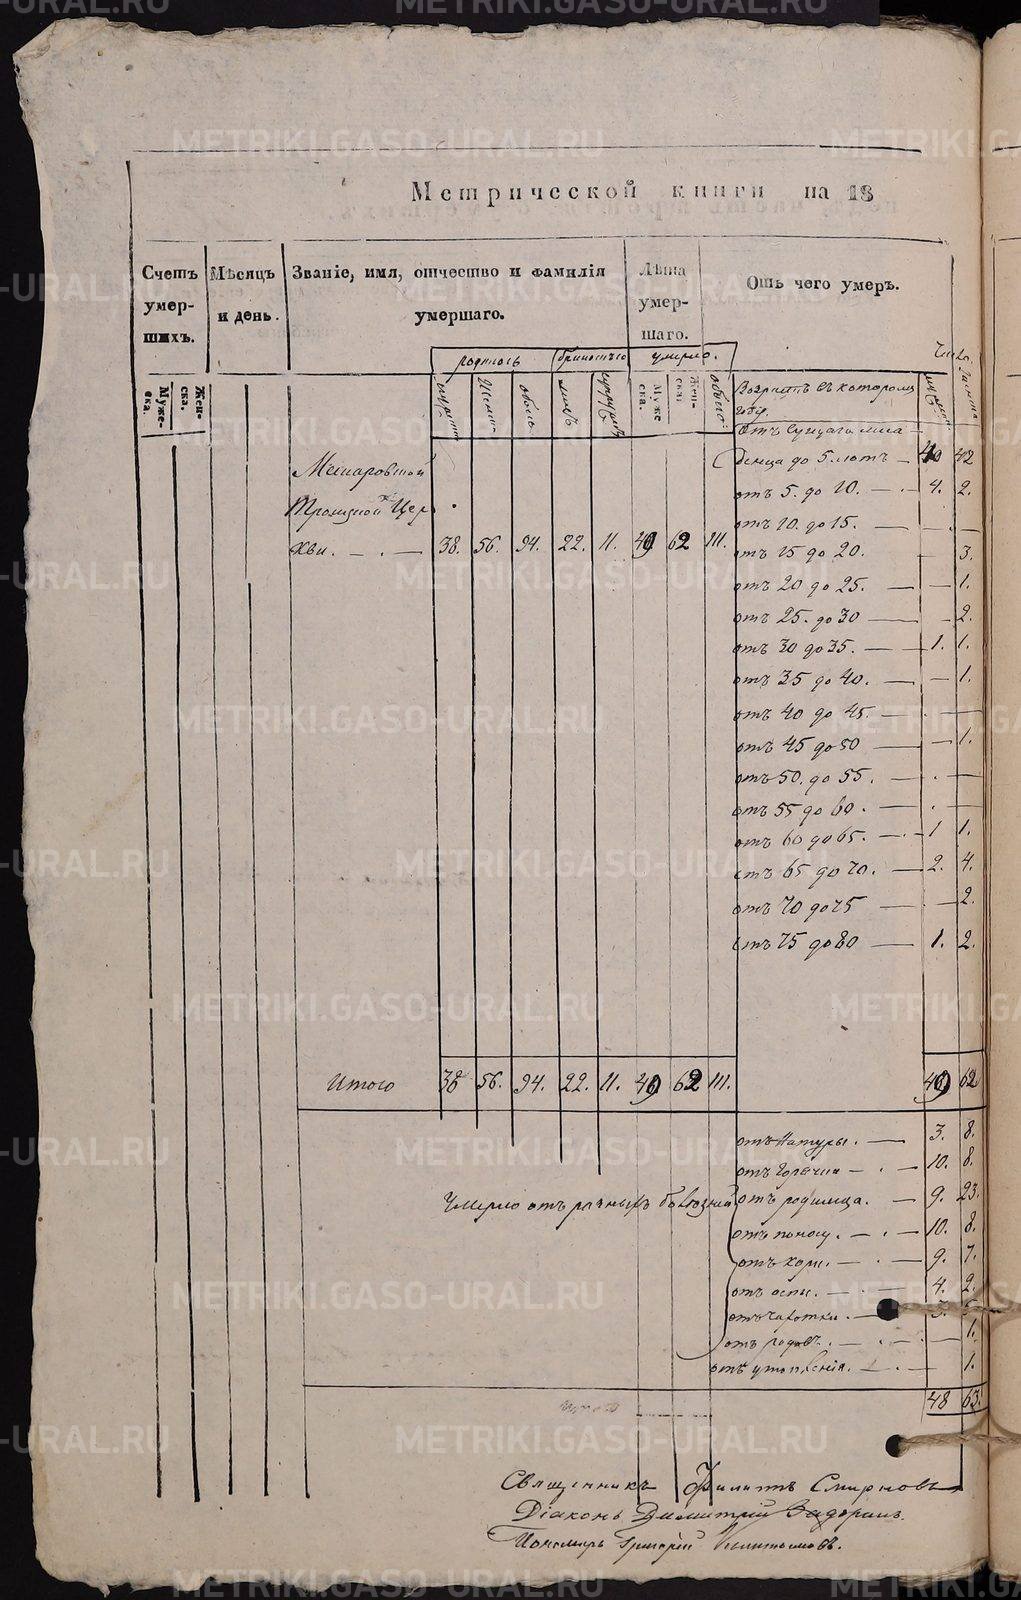 Метрической книги на 18
Счетъ умершихъ.
Мѣсяцъ и день.
Званіе, имя, отчество и фамилія умершаго.
Лѣта умершаго.
Отъ чего умеръ.
Муже-
ска.
Жен-
ска.
родилось
бракосъче
умерло.
обоего
Муже
ска.
Жен-
ска.
обоего
Возрастъ въ котором
Число
Троицкой Цер
кви. — . — 38. 56. 94. 22. 11. 49 62 111.
отъ сущаго мла
денца до 5. лѣтъ — 40 42
отъ 5. до 10. — . 4. 2.
отъ 10. до 15. — . — . —
отъ 15 до 20. — 3.
отъ 20 до 25. — — 1.
отъ 25. до 30 — — 2.
отъ 30 до 35. — — 1. 1.
отъ 35 до 40. — — 1.
отъ 40 до 45. — . —
отъ 45 до 50 — — 1.
отъ 50. до 55. — . —
отъ 55 до 60. — . —
отъ 60 до 65. — . — 1 1.
отъ 65 до 70. — 2. 4.
отъ 70 до 75 — — 2.
отъ 75 до 80 — 1. 2.
Итого 38 56. 94. 22. 11. 49 62 111. 49 62
отъ Натуры. — 3. 8.
отъ Горячки — . — 10. 8.
Умерло отъ разныхъ болѣзней
отъ родимца. — 9. 23.
отъ поносу. — . — 10. 8.
отъ кори. — . — 9. 7.
отъ оспы. — . 4. 2.
отъ чахотки. — 3.
отъ родовъ. — . — 1.
отъ утопленія. — . — 1.
Итого
48 63.
Священникъ Филиппъ Смирновъ
Діаконъ Димитрій
Пономарь Григорій
METRIKI.GASO-URAL.RU